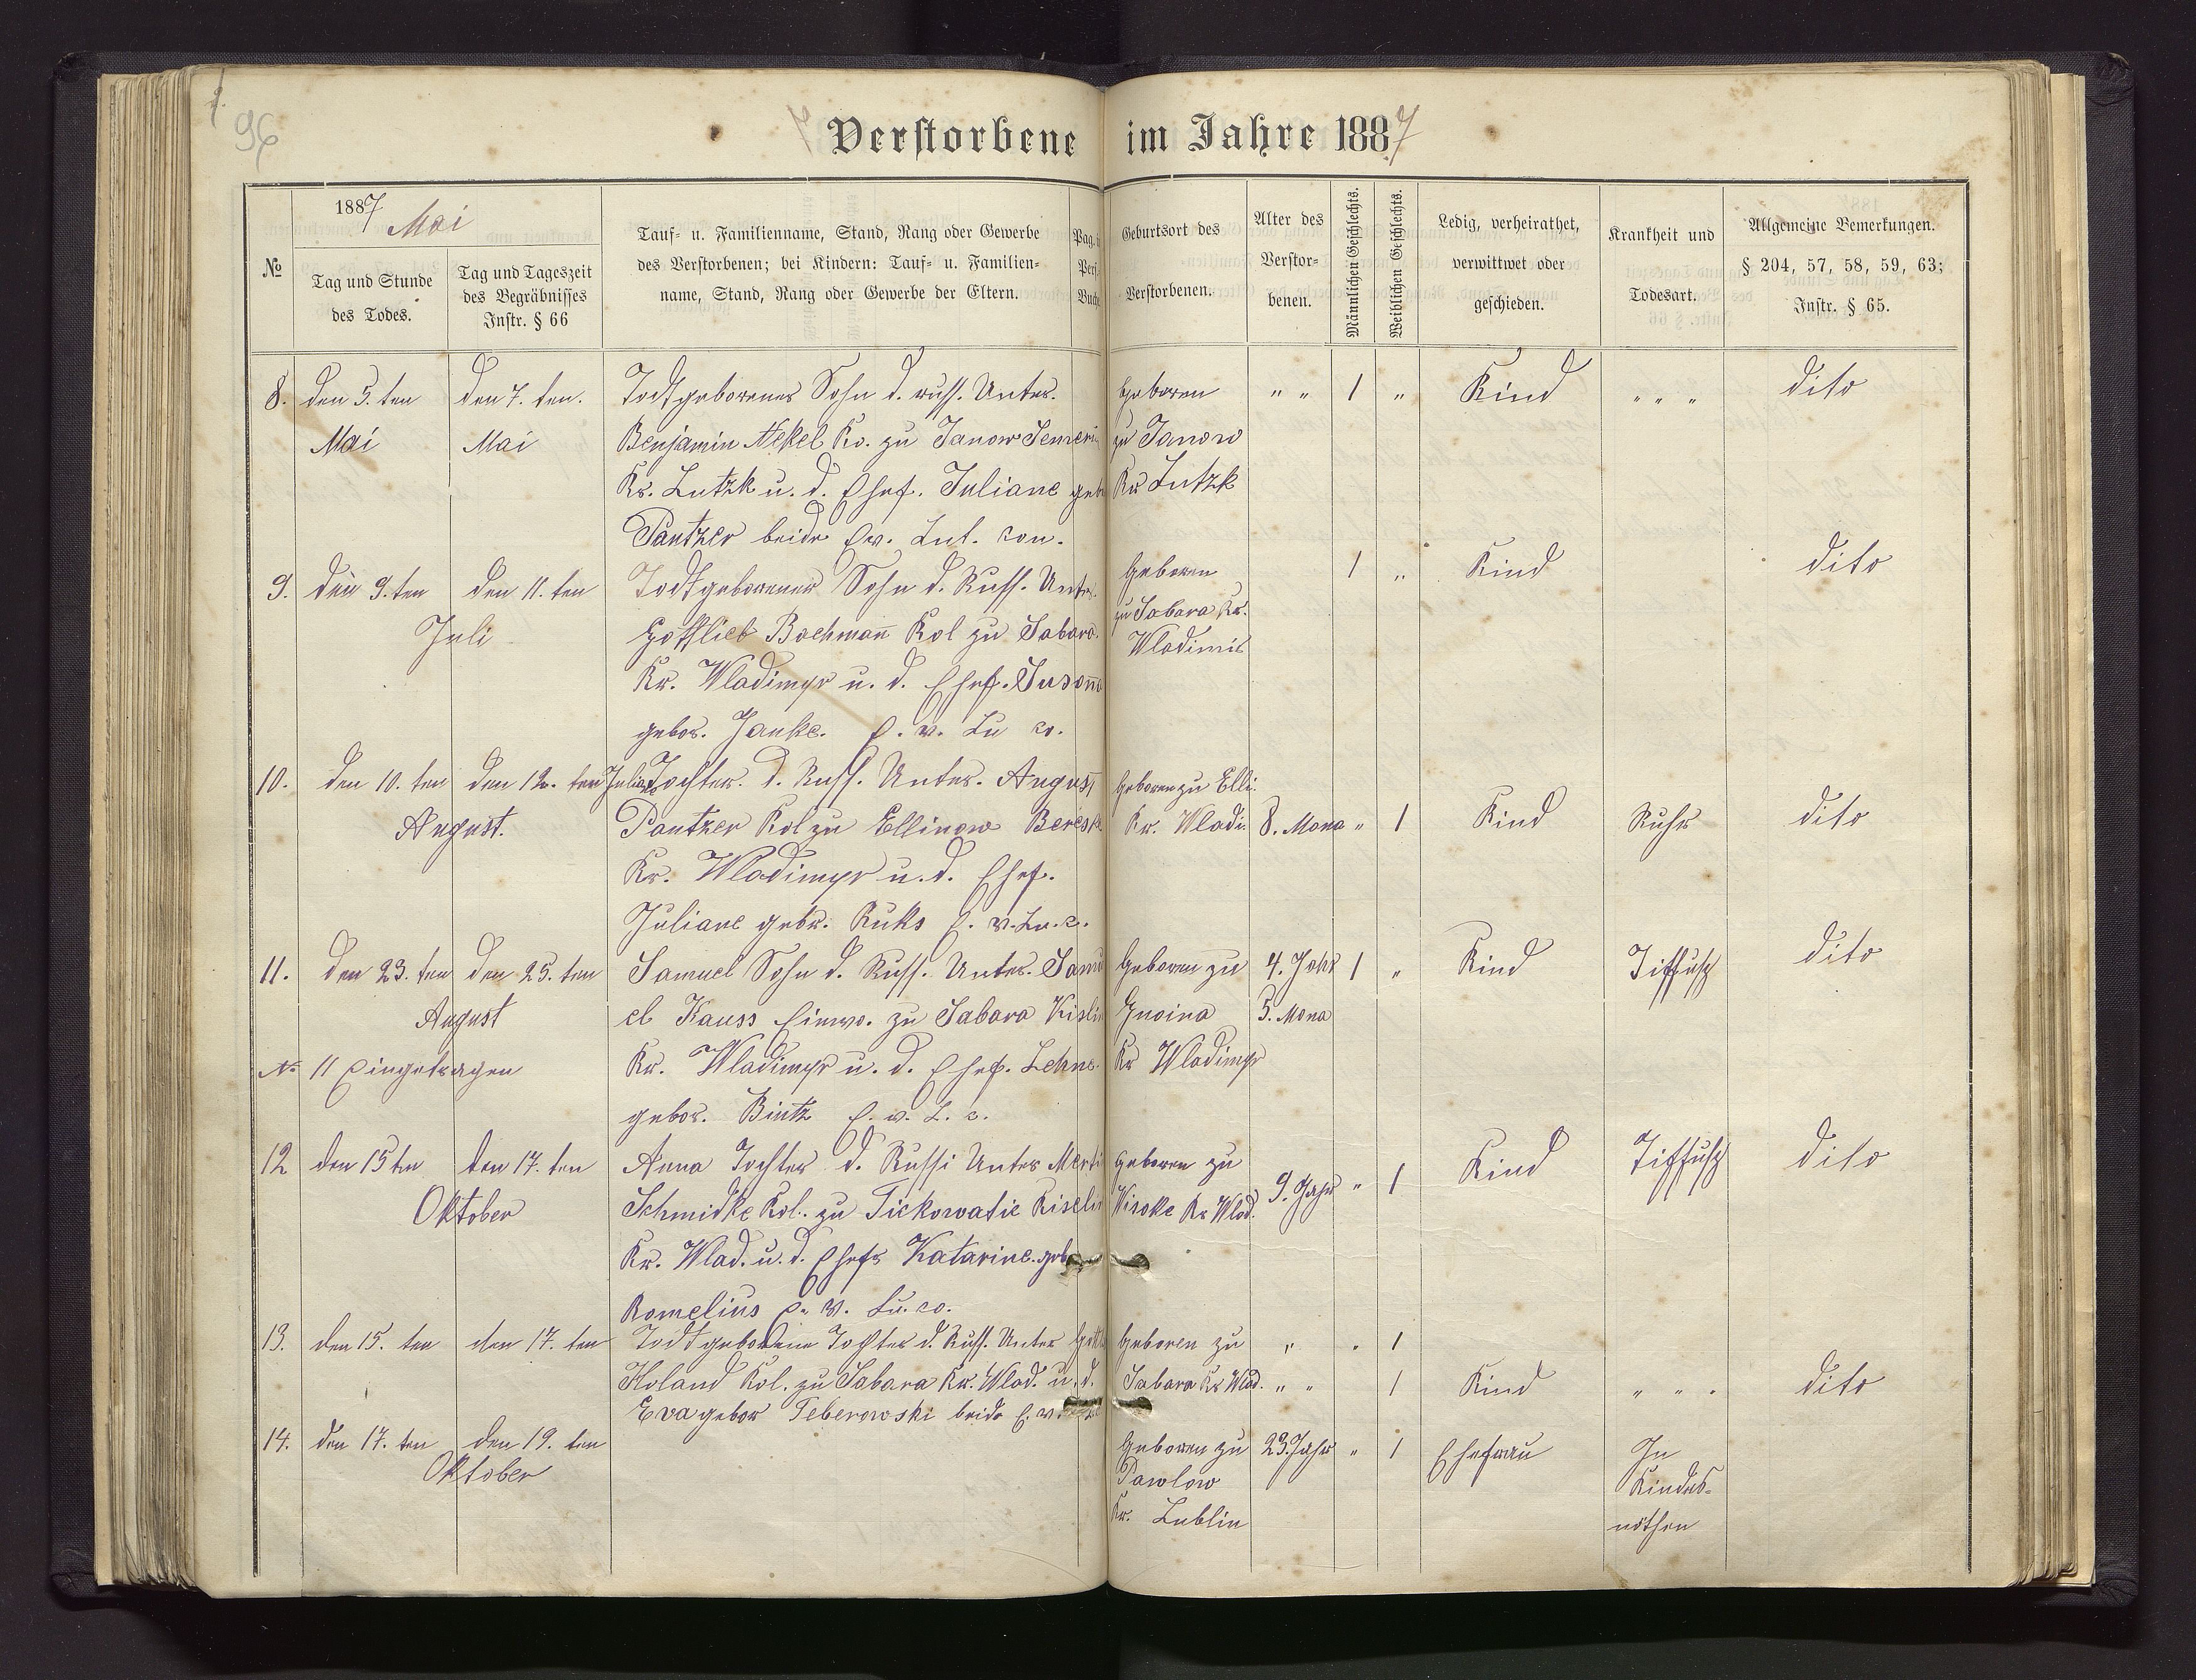 96
Verstorbene im Jahre 1887
№
1887 Mai
Tag und Stunde des Todes.
Tag und Tageszeit des Begräbnisses Instr. § 66
Tauf- u. Familienname, Stand, Rang oder Gewerbe
des Verstorbenen; bei Kindern: Tauf- u. Familien-
name, Stand, Rang oder Gewerbe der Eltern.
Pag. Pers. Buch
Geburtsort des Verstorbenen.
Alter des Verstor-benen.
Männlichen Geschlechts.
Weiblichen Geschlechts.
Ledig, verheirathet, verwittwet oder geschieden.
Krankheit und Todesart.
Allgemeine Bemerkungen.
§ 204, 57, 58, 59, 63;
Instr. § 65.
8. den 5. ten den 7. ten. Todtgeborener Sohn d. russ. Unter. Geboren " " 1 " Kind " " " dito
Mai Mai Benjamin Nekel Ko. zu Janow zu Janow
Kr. Lutzk u. d. Ehef. Juliane geb Kr Lutzk
Pantzer beide Ev. Lut. con.
9. den 9. ten den 11. ten Todtgeborener Sohn d. Russ. Unter. Geboren 1 " Kind dito
Juli Gottlieb Bachmañ Kol zu Sabara zu Sabara Kr.
Kr. Wladimyr u. d. Ehef. Susoña Wladimir
gebor. Janke. E. v. Lu co.
10. den 10. ten den 12. ten Juliane Tochter. d. Russ. Unter. August Geboren zu Elli.
August. Pantzer Kol zu Ellinow Beresk Kr. Wladi. 8. Mona " 1 Kind Ruhr dito
Kr. Wladimyr u. d. Ehef.
Juliane gebr. Kuks E. v. Lu. c.
11. den 23. ten den 25. ten Samuel Sohn d. Russ. Unter. Samu Geboren zu 4. Jahr 1 " Kind Tiffuss dito
August el Kauss Einwo. zu Sabara Kislin Gnoina 5. Mona
№ 11 Eingetragen Kr. Wladimyr u. d. Ehef. Lehne. Kr Wladimyr
gebor. Bintz E. v. L. c.
12 den 15 ten den 17. ten Anna Tochter d. Russi Unter Marti Geboren zu 9. Jahr " 1 Kind Tiffuss dito
Oktober Schmidke Kol. zu Tickowatie Kiselin Wisoke Kr Wlad.
Kr. Wlad. u. d. Ehefr Katarine. geb
Romelius E. v. Lu. co.
13. den 15. ten den 17. ten Todtgeborene Tochter d. Russ. Unter Gottl Geboren zu " . 1
Holand Kol. zu Sabara Kr. Wlad. u. d. Sabara Kr Wlad. " " 1 Kind " " " dito
Eva gebor Teberowski beide E. v.
14. den 17. ten den 19. ten Geboren zu 23. Jahr " 1 Ehefrau In
Oktober Pawlow Kindes-
Kr. Lublin nöthen